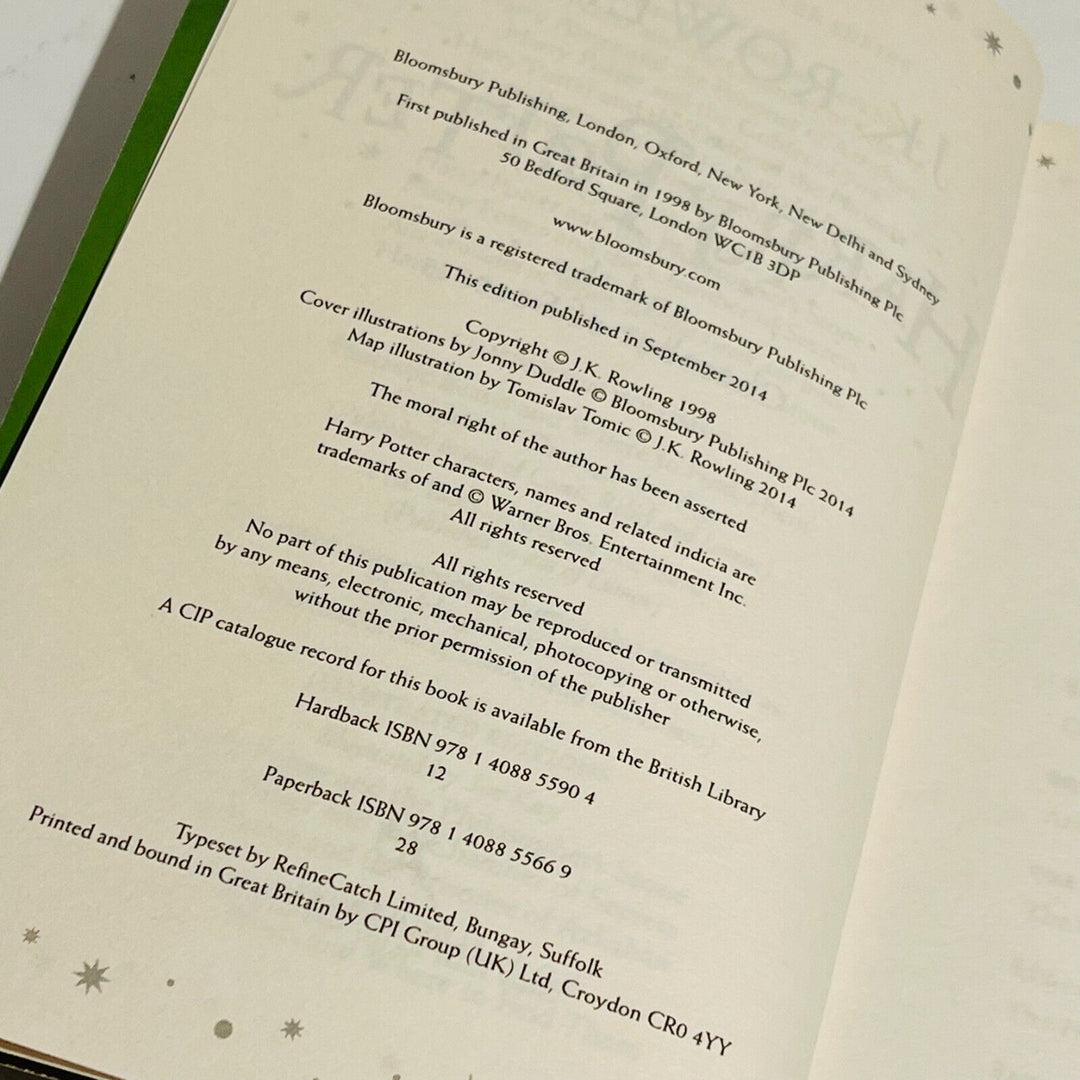 Bloomsbury Publishing, London, Oxford, New York, New Delhi and Sydney
First published in Great Britain in 1998 by Bloomsbury Publishing Plc
50 Bedford Square, London WC1B 3DP
www.bloomsbury.com
Bloomsbury is a registered trademark of Bloomsbury Publishing Plc
This edition published in September 2014
Copyright © J.K. Rowling 1998
Cover illustrations by Jonny Duddle © Bloomsbury Publishing Plc 2014
Map illustration by Tomislav Tomic © J.K. Rowling 2014
The moral right of the author has been asserted
Harry Potter characters, names and related indicia are
trademarks of and © Warner Bros. Entertainment Inc.
All rights reserved
All rights reserved
No part of this publication may be reproduced or transmitted
by any means, electronic, mechanical, photocopying or otherwise,
without the prior permission of the publisher
A CIP catalogue record for this book is available from the British Library
Hardback ISBN 978 1 4088 5590 4
12
Paperback ISBN 978 1 4088 5566 9
28
Typeset by RefineCatch Limited, Bungay, Suffolk
Printed and bound in Great Britain by CPI Group (UK) Ltd, Croydon CR0 4YY